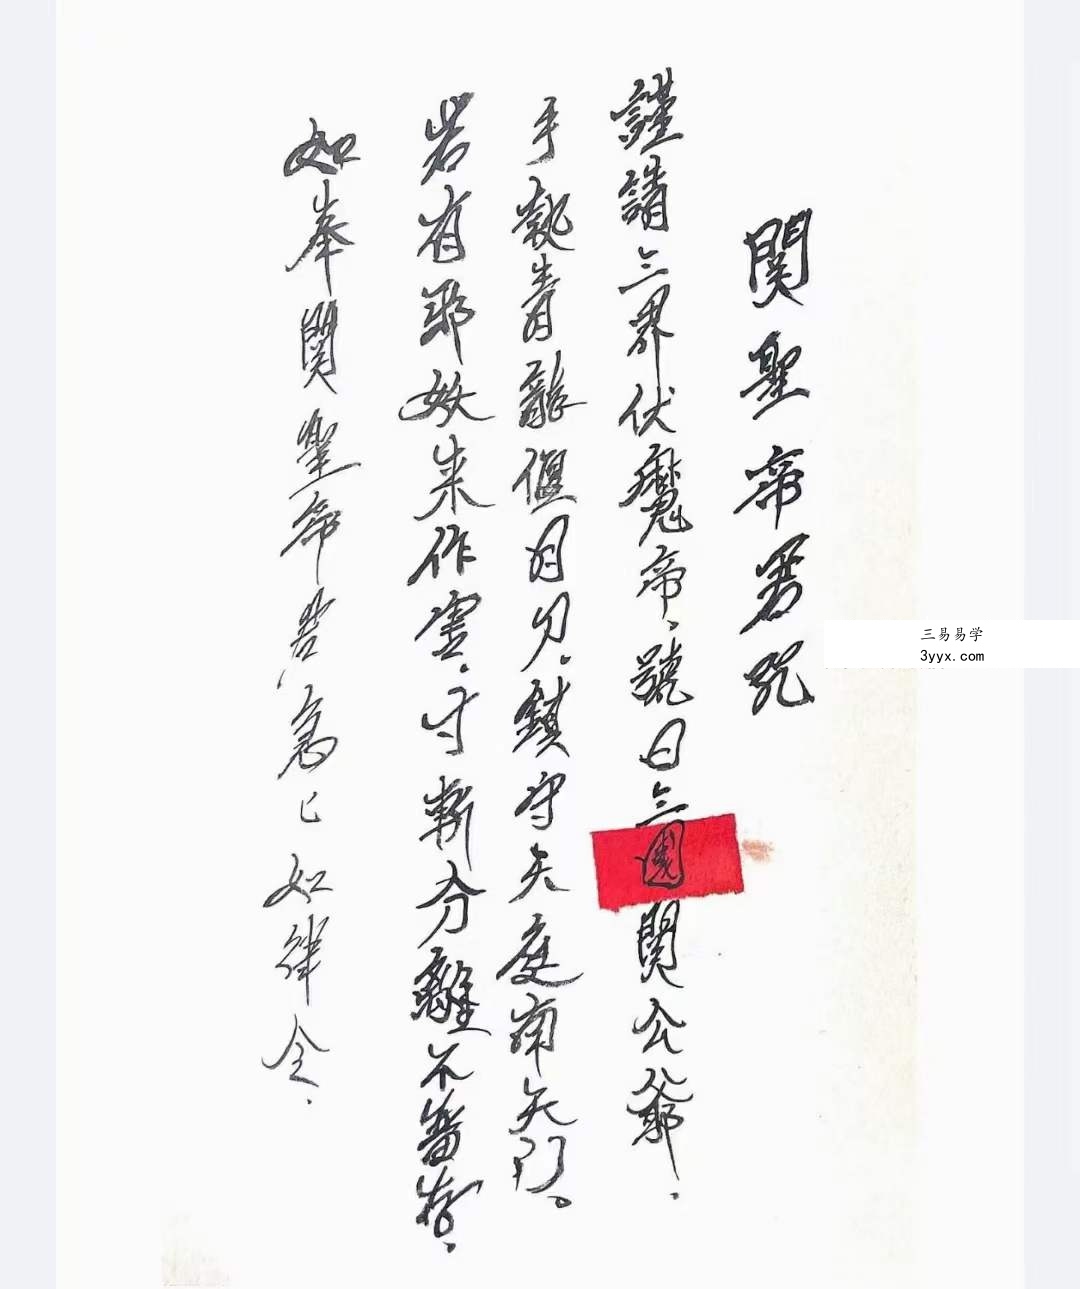 關聖帝君咒
謹請三界伏魔帝、號曰三國關公爺、
手執青龍偃月刀、鎮守天庭南天門。
若有邪妖來作害、寸斬分離不留存、
如奉關聖帝君急急如律令、
三易易学
3yyx.com